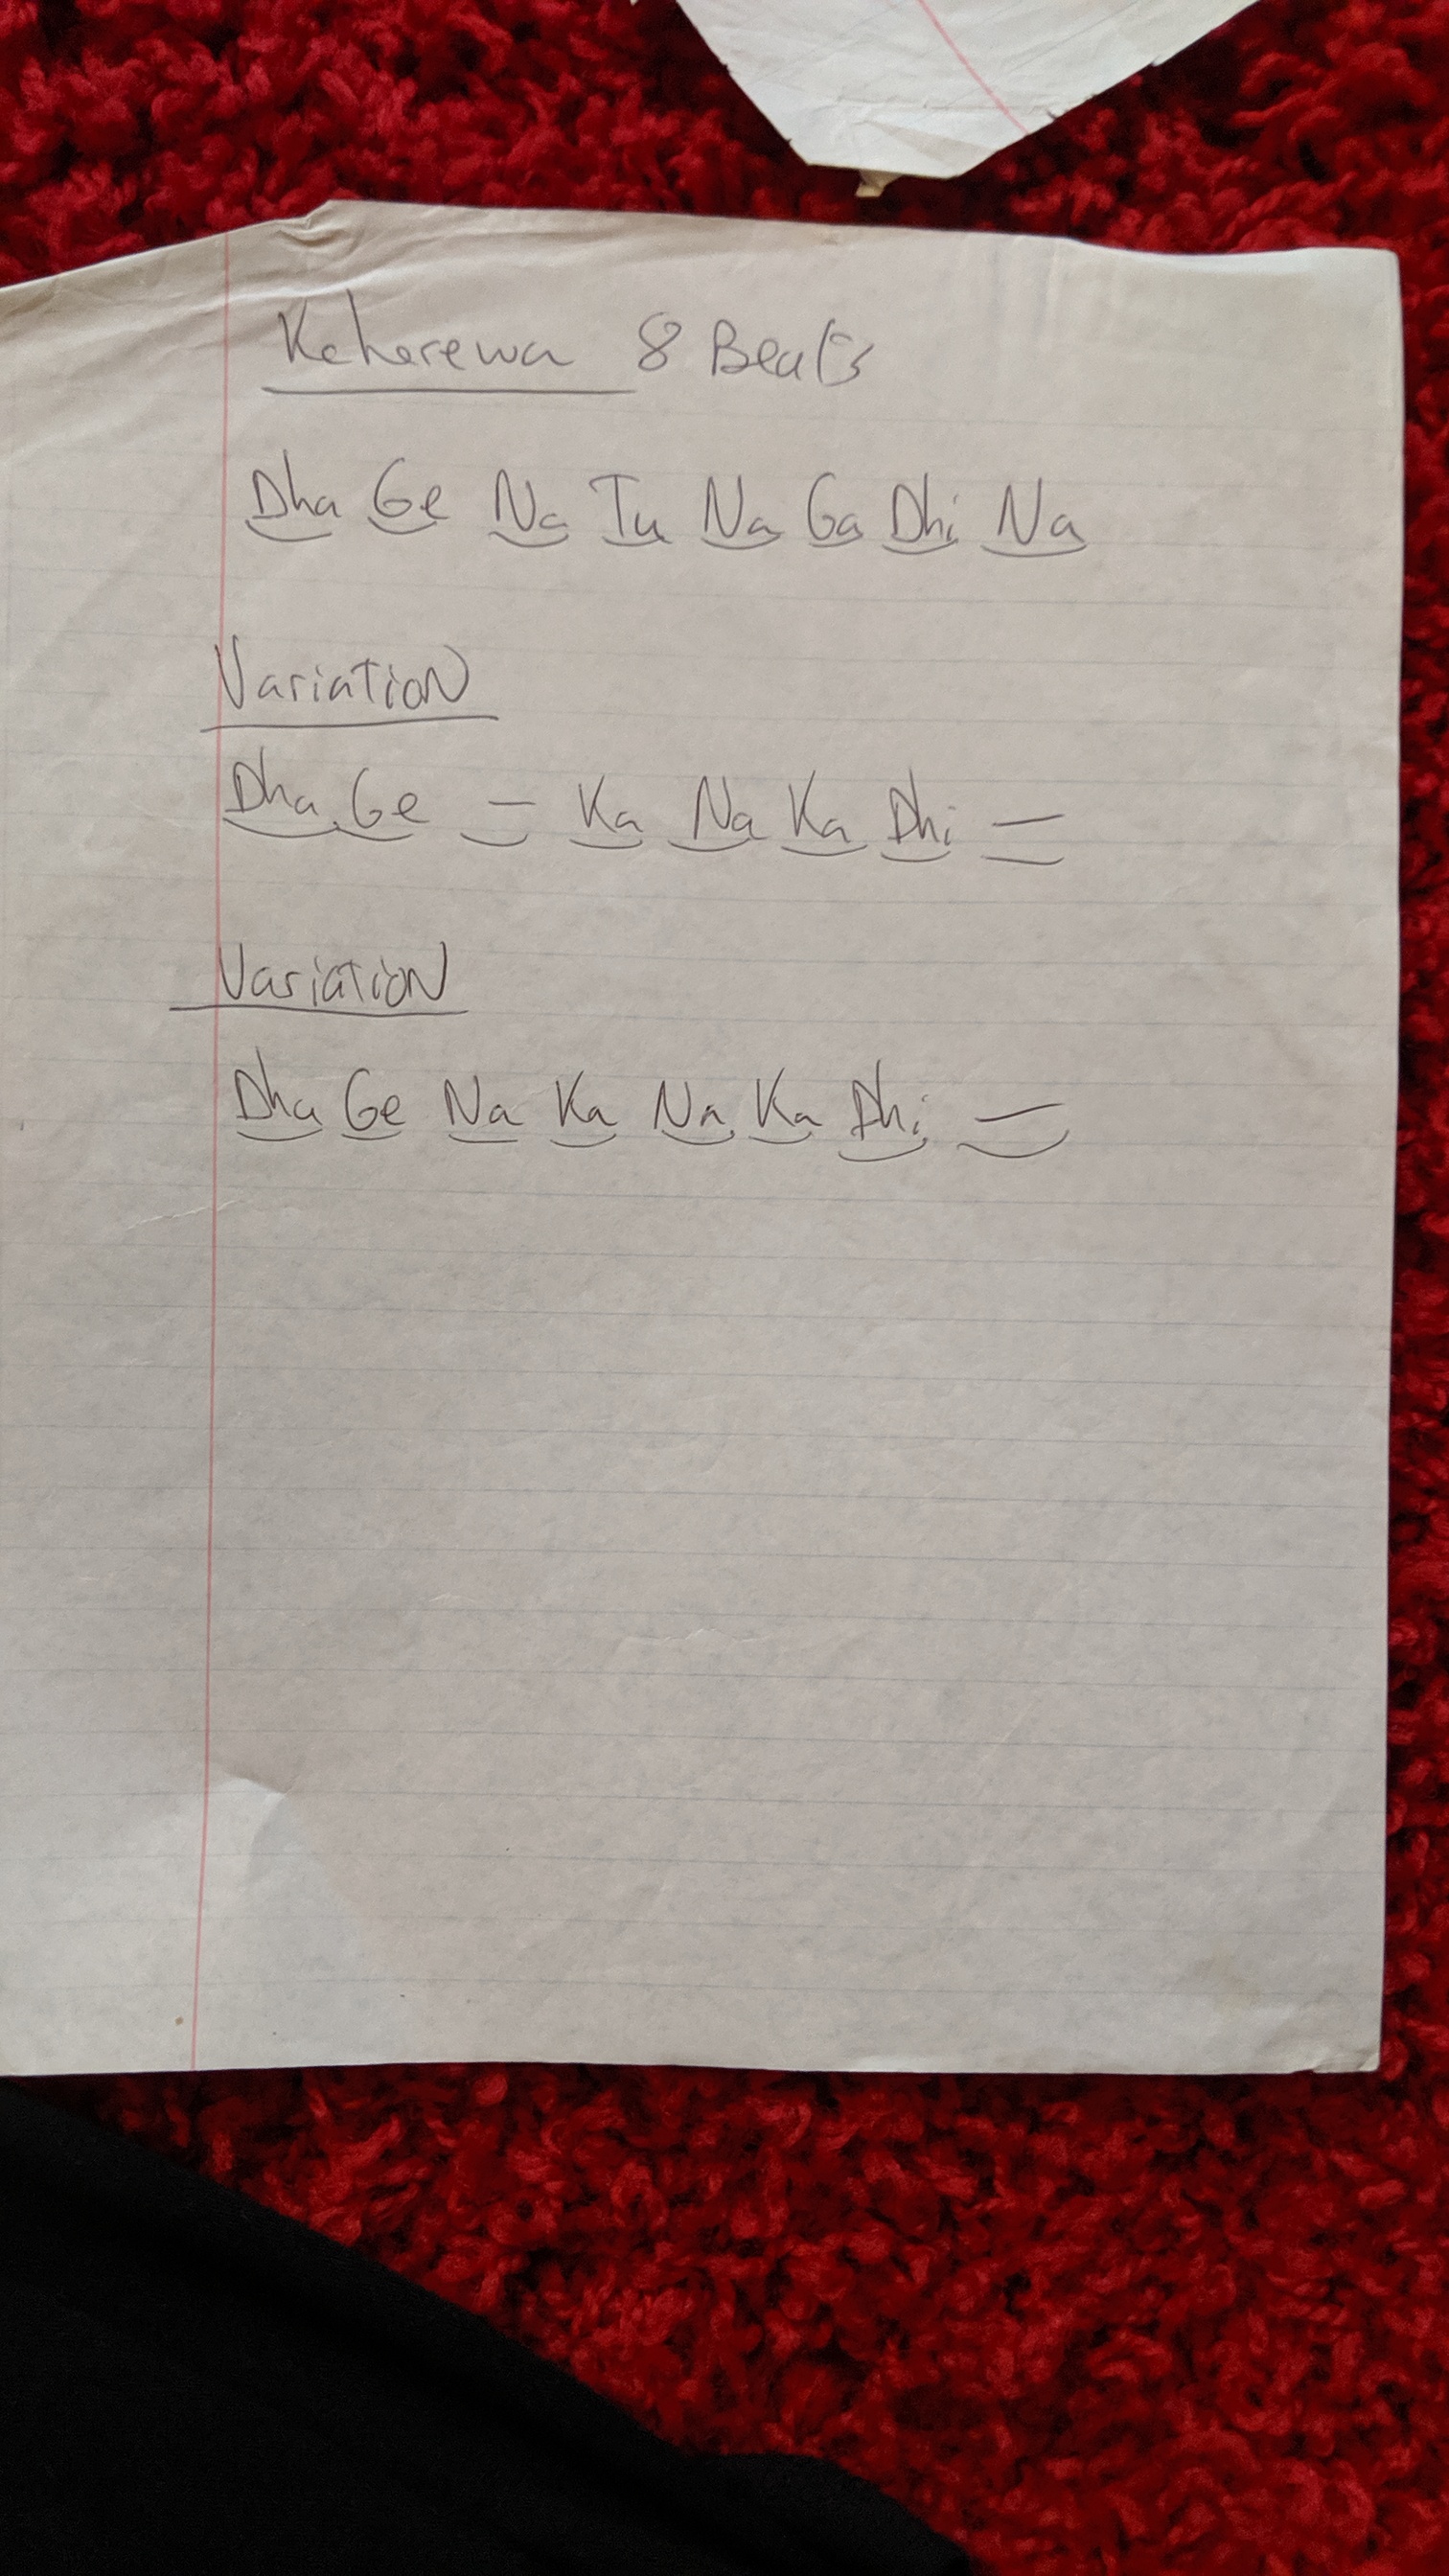 Keherewa 8 Beats
Dha Ge Na Tu Na Ga Dhi Na
Variation
Dha Ge – Ka Na Ka Dhi –
Variation
Dha Ge Na Ka Na Ka Dhi –